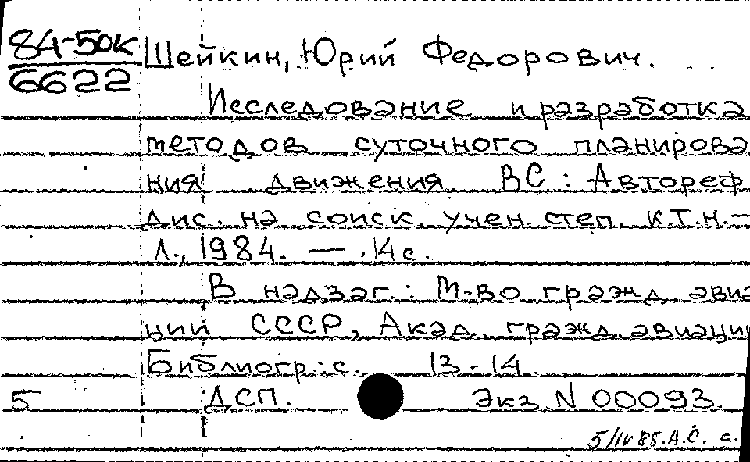 84-50К Шейкин, Юрий Федорович.
6622
Исследование и разработка
методов суточного планирова
ния движения ВС: Автореф
дис. на соиск. учен. степ. к.т.н.–
Л., 1984. — 14 с.
В надзаг.: М-во гражд. авиа
ции СССР, Акад. гражд. авиации
Библиогр.: с. 13-14
5 ДСП. Экз. N 00093.
5/IV 85. А.С. а.